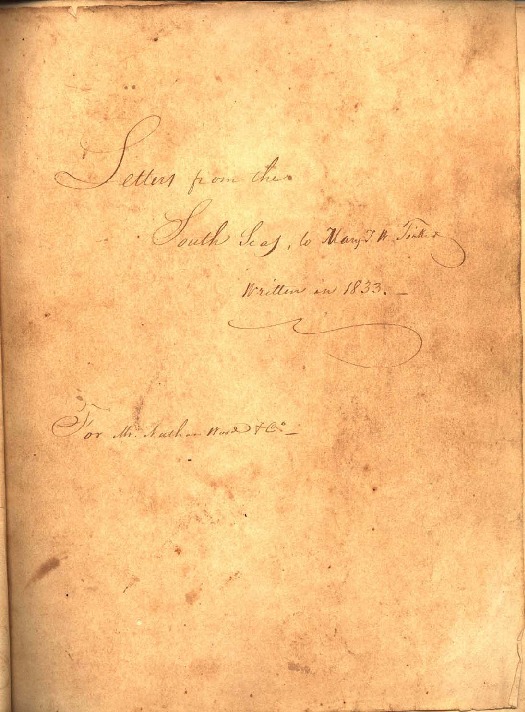 Letters from the
South Seas, to Mary T. W. Tinker
Written in 1833. —
For Mr. Nathan Ward & Co. —